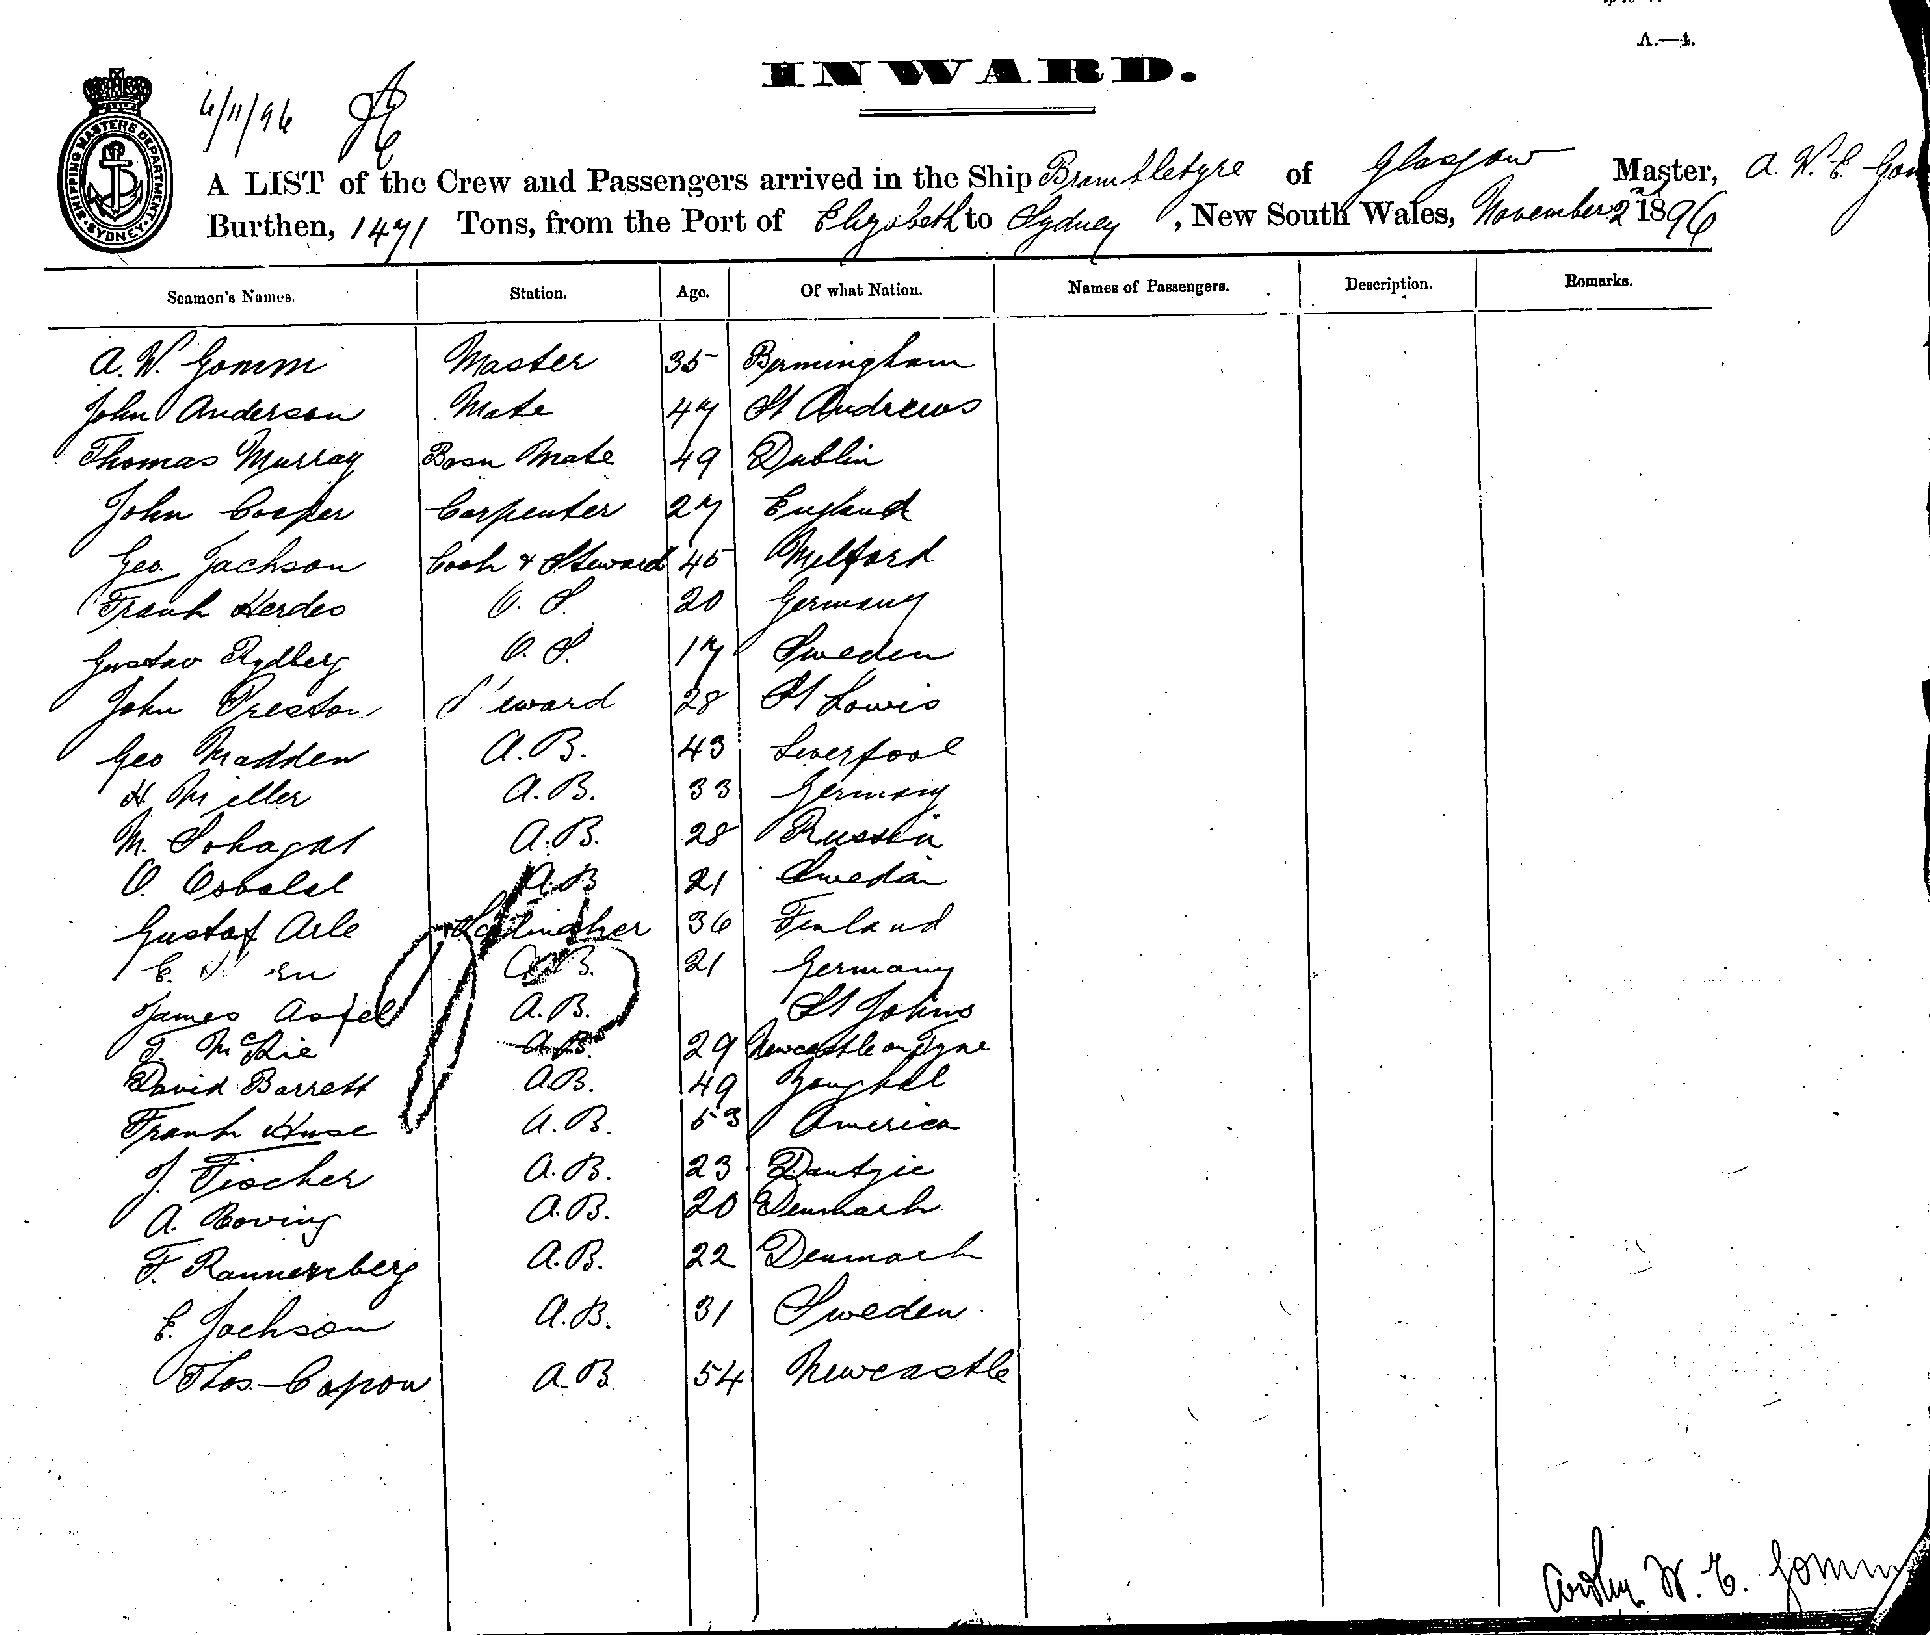 A.—4.
INWARD.
6/11/96
SHIPPING MASTERS DEPARTMENT SYDNEY
A LIST of the Crew and Passengers arrived in the Ship Brambletyre of Glasgow Master, A. W. E. Gom
Burthen, 1471 Tons, from the Port of Elizabeth to Sydney, New South Wales, November 2nd 1896
Seamen's Names. Station. Age. Of what Nation. Names of Passengers. Description. Remarks.
A. W. Gomm Master 35 Birmingham
John Anderson Mate 47 St Andrews
Thomas Murray Bosn Mate 49 Dublin
John Cooper Carpenter 27 England
Geo Jackson Cook & Steward 45 Milford
Frank Herdes O. S. 20 Germany
Gustav Rydberg O. S. 17 Sweden
John Preston Steward 28 St Louis
Geo Madden A.B. 43 Liverpool
H Miller A.B. 33 Germany
M. A.B. 28 Russia
O. A.B 21 Sweden
Gustaf Arle 36 Finland
E. A.B. 21 Germany
James A.B. St Johns
T. McKie A.B. 29 Newcastle on Tyne
David Barrett A.B. 49 Youghal
Frank Huse A.B. 53 America
J. Fischer A.B. 23 Dantzic
A. Roving A.B. 20 Denmark
F. Rannenberg A.B. 22 Denmark
E. Jackson A.B. 31 Sweden
Thos Capon A.B. 54 Newcastle
W. E. Gomm